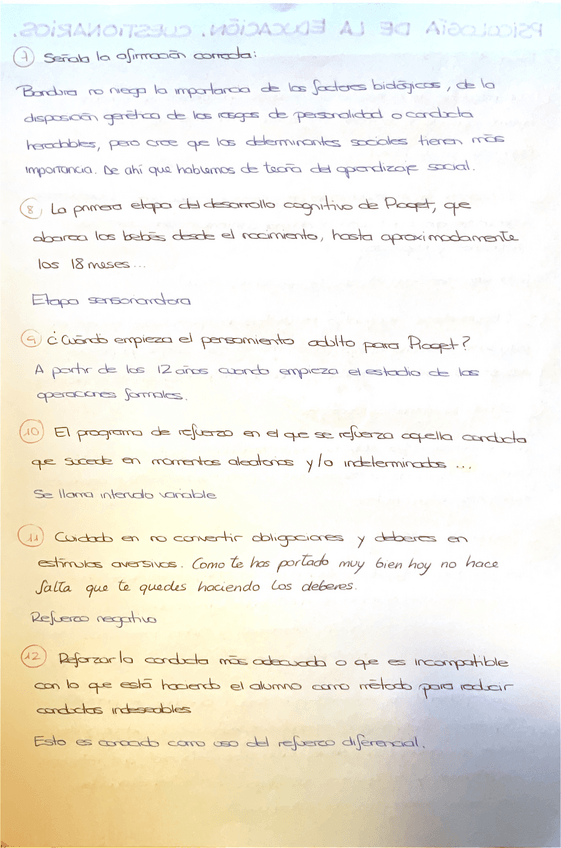 PSICOLOGÍA DE LA EDUCACIÓN. CUESTIONARIOS.
7 Señala la afirmación correcta:
Bandura no niega la importancia de los factores biológicos, de la
disposición genética de los rasgos de personalidad o conducta
heredables, pero cree que los determinantes sociales tienen más
importancia. De ahí que hablemos de teoría del aprendizaje social.
8 La primera etapa del desarrollo cognitivo de Piaget, que
abarca los bebés desde el nacimiento, hasta aproximadamente
los 18 meses...
Etapa sensoriomotora
9 ¿Cuándo empieza el pensamiento adulto para Piaget?
A partir de los 12 años cuando empieza el estadio de las
operaciones formales.
10 El programa de refuerzo en el que se refuerza aquella conducta
que sucede en momentos aleatorios y/o indeterminados ...
Se llama intervalo variable
11 Cuidado en no convertir obligaciones y deberes en
estímulos aversivos. Como te has portado muy bien hoy no hace
falta que te quedes haciendo los deberes.
Refuerzo negativo
12 Reforzar la conducta más adecuada o que es incompatible
con lo que está haciendo el alumno como método para reducir
conductas indeseables
Esto es conocido como uso del refuerzo diferencial.